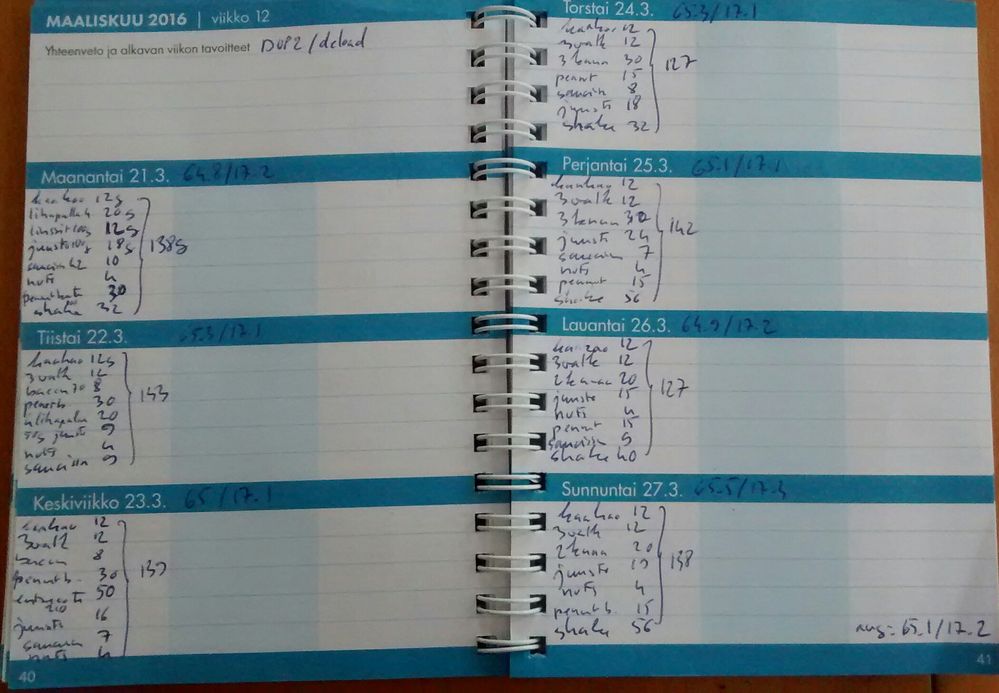 MAALISKUU 2016 | viikko 12
Yhteenveto ja alkavan viikon tavoitteet DUP2/deload
Maanantai 21.3. 64.8/17.2
kaakao 12g
lihapullat 20g
linssit 100g 12g
juusto 100g 18g
10
nuts 4
30
shake 32
138g
Tiistai 22.3. 65.3/17.1
kaakao 12g
3valk 12
bacon 70 8
30
20
50g juusto 9
nuts 4
9
143
Keskiviikko 23.3. 65/17.1
kaakao 12
3valk 12
bacon 8
peanut b. 30
50
210
juusto 16
7
nuts 4
139
40
Torstai 24.3. 65.3/17.1
kaakao 12
3valk 12
3 kanan 30
peanut 15
8
juusto 18
shake 32
127
Perjantai 25.3. 65.1/17.1
kaakao 12
3valk 12
3 kanan 30
juusto 24
7
nuts 4
peanut 15
shake 56
142
Lauantai 26.3. 64.9/17.2
kaakao 12
3valk 12
2 kanaa 20
juusto 15
nuts 4
peanut 15
9
shake 40
127
Sunnuntai 27.3. 65.5/17.3
kaakao 12
3valk 12
2 kana 20
juusto 19
nuts 4
peanut b. 15
shake 56
138
avg= 65.1/17.2
41